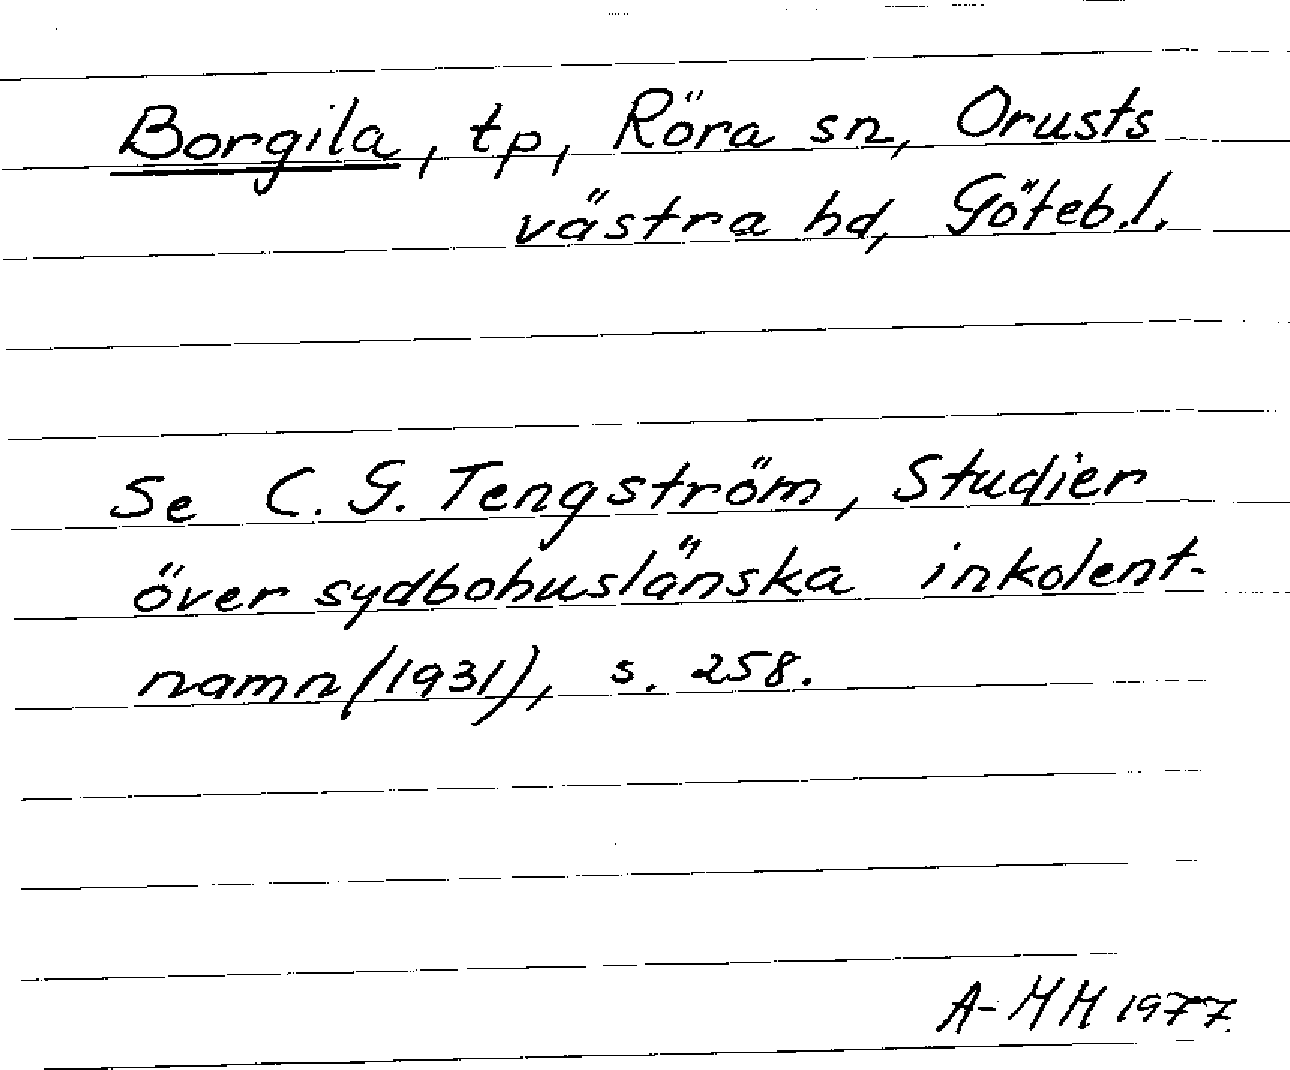 Borgila, tp, Röra sn, Orusts
västra hd, Göteb.l.
Se C. G. Tengström, Studier
över sydbohuslänska inkolent-
namn (1931), s. 258.
A-HH 1977.